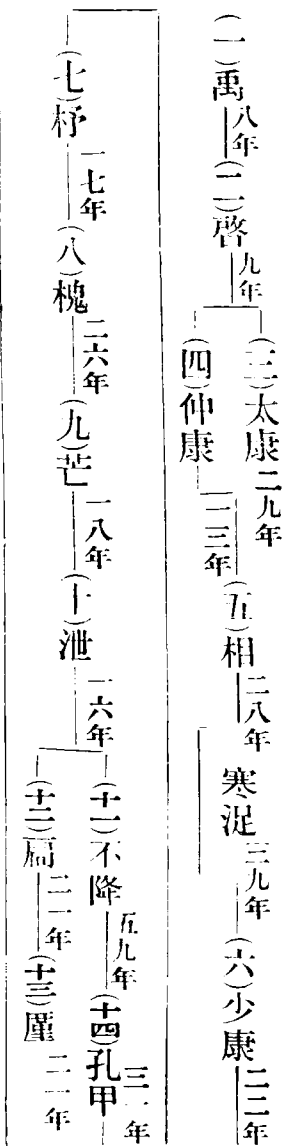 (一)禹八年(二)啓九年
(三)太康二九年
(四)仲康一三年(五)相二八年 寒浞三九年(六)少康二二年
(七)杼一七年(八)槐二六年(九)芒一八年(十)泄一六年
(十一)不降五九年(十四)孔甲三一年
(十二)扃二一年(十三)厪二一年